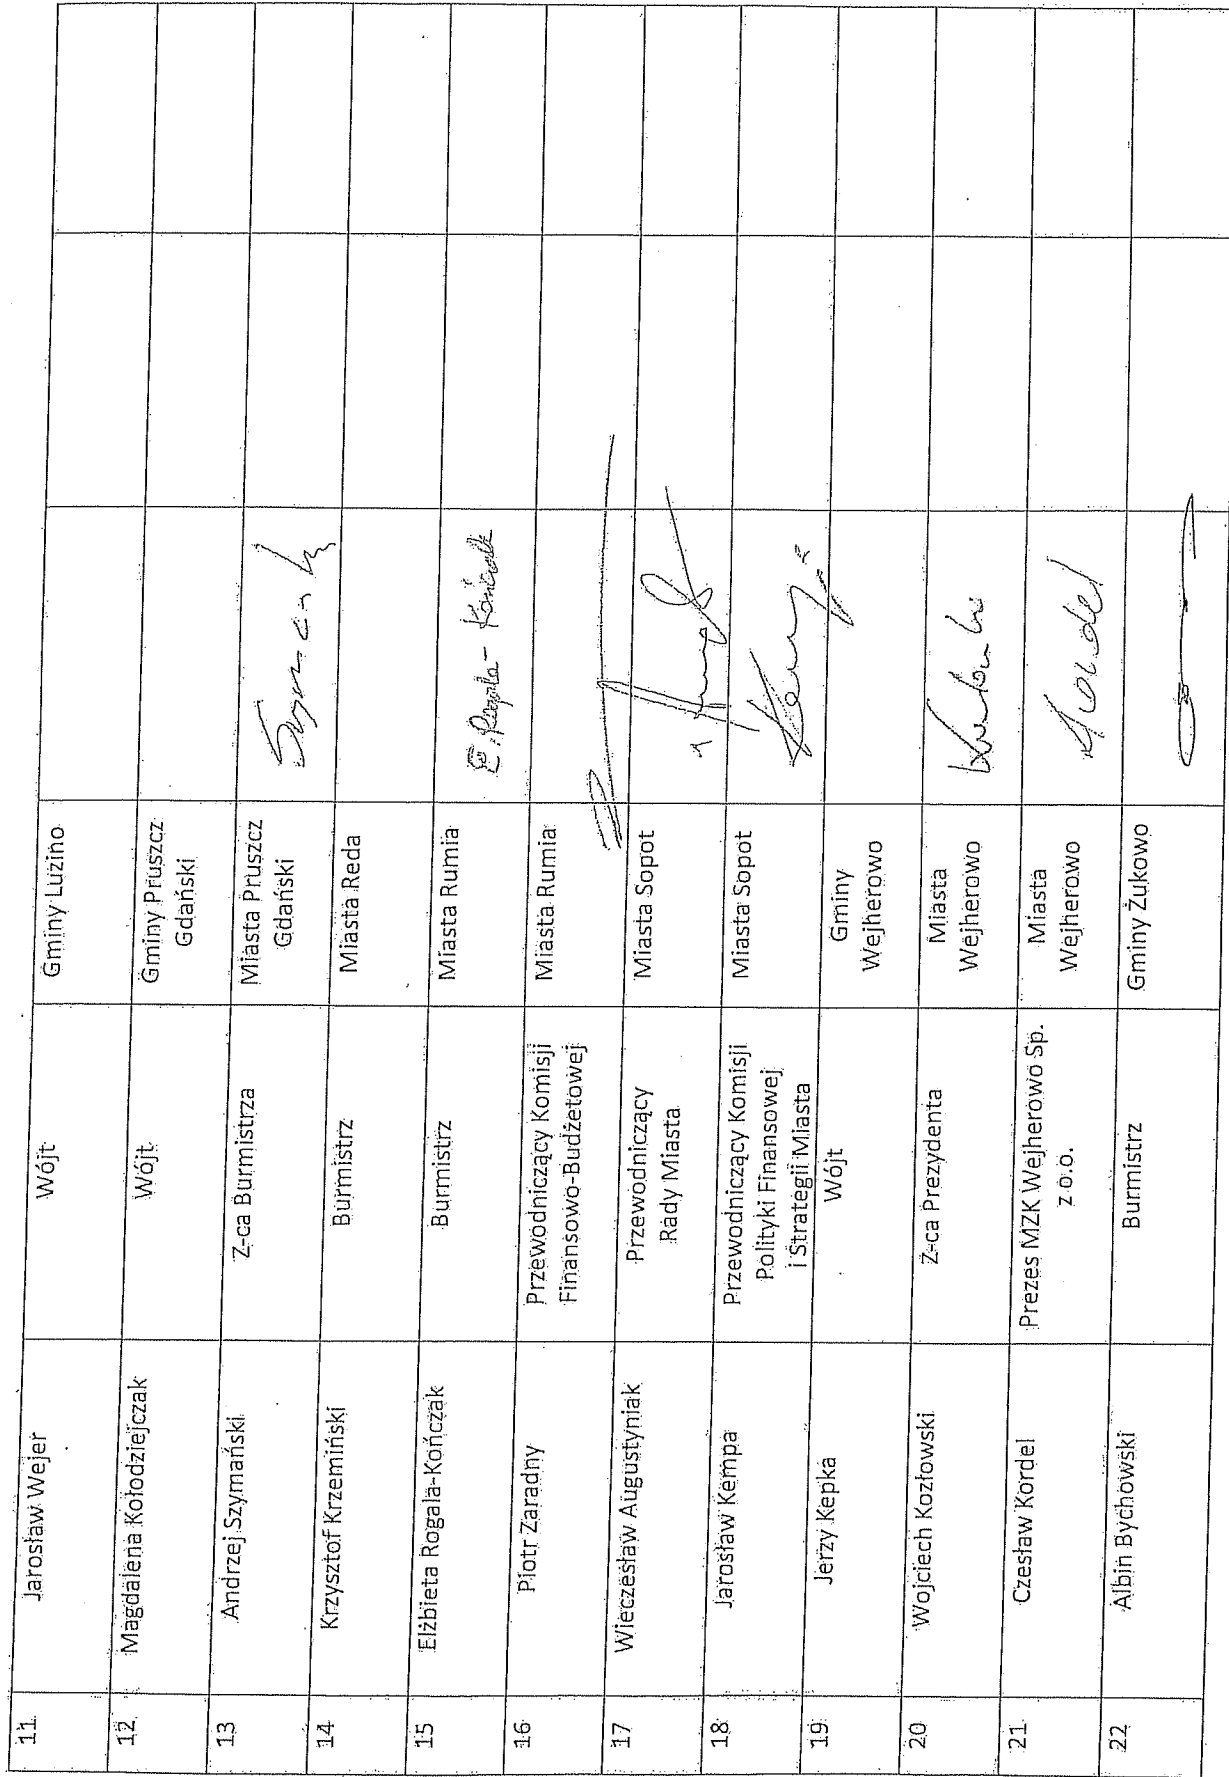 11. Jarosław Wejer Wójt Gminy Luzino
12. Magdalena Kołodziejczak Wójt Gminy Pruszcz
Gdański
13 Andrzej Szymański Z-ca Burmistrza Miasta Pruszcz
Gdański
14 Krzysztof Krzemiński Burmistrz Miasta Reda
15 Elżbieta Rogala-Kończak Burmistrz Miasta Rumia E. Rogala-Kończak
16 Piotr Zaradny Przewodniczący Komisji Miasta Rumia
Finansowo-Budżetowej
17 Wieczesław Augustyniak Przewodniczący Miasta Sopot
Rady Miasta
18 Jarosław Kempa Przewodniczący Komisji Miasta Sopot
Polityki Finansowej
i Strategii Miasta
19 Jerzy Kepka Wójt Gminy
Wejherowo
20 Wojciech Kozłowski Z-ca Prezydenta Miasta
Wejherowo
21 Czesław Kordel Prezes MZK Wejherowo Sp. Miasta
z o.o. Wejherowo Kordel
22 Albin Bychowski Burmistrz Gminy Żukowo